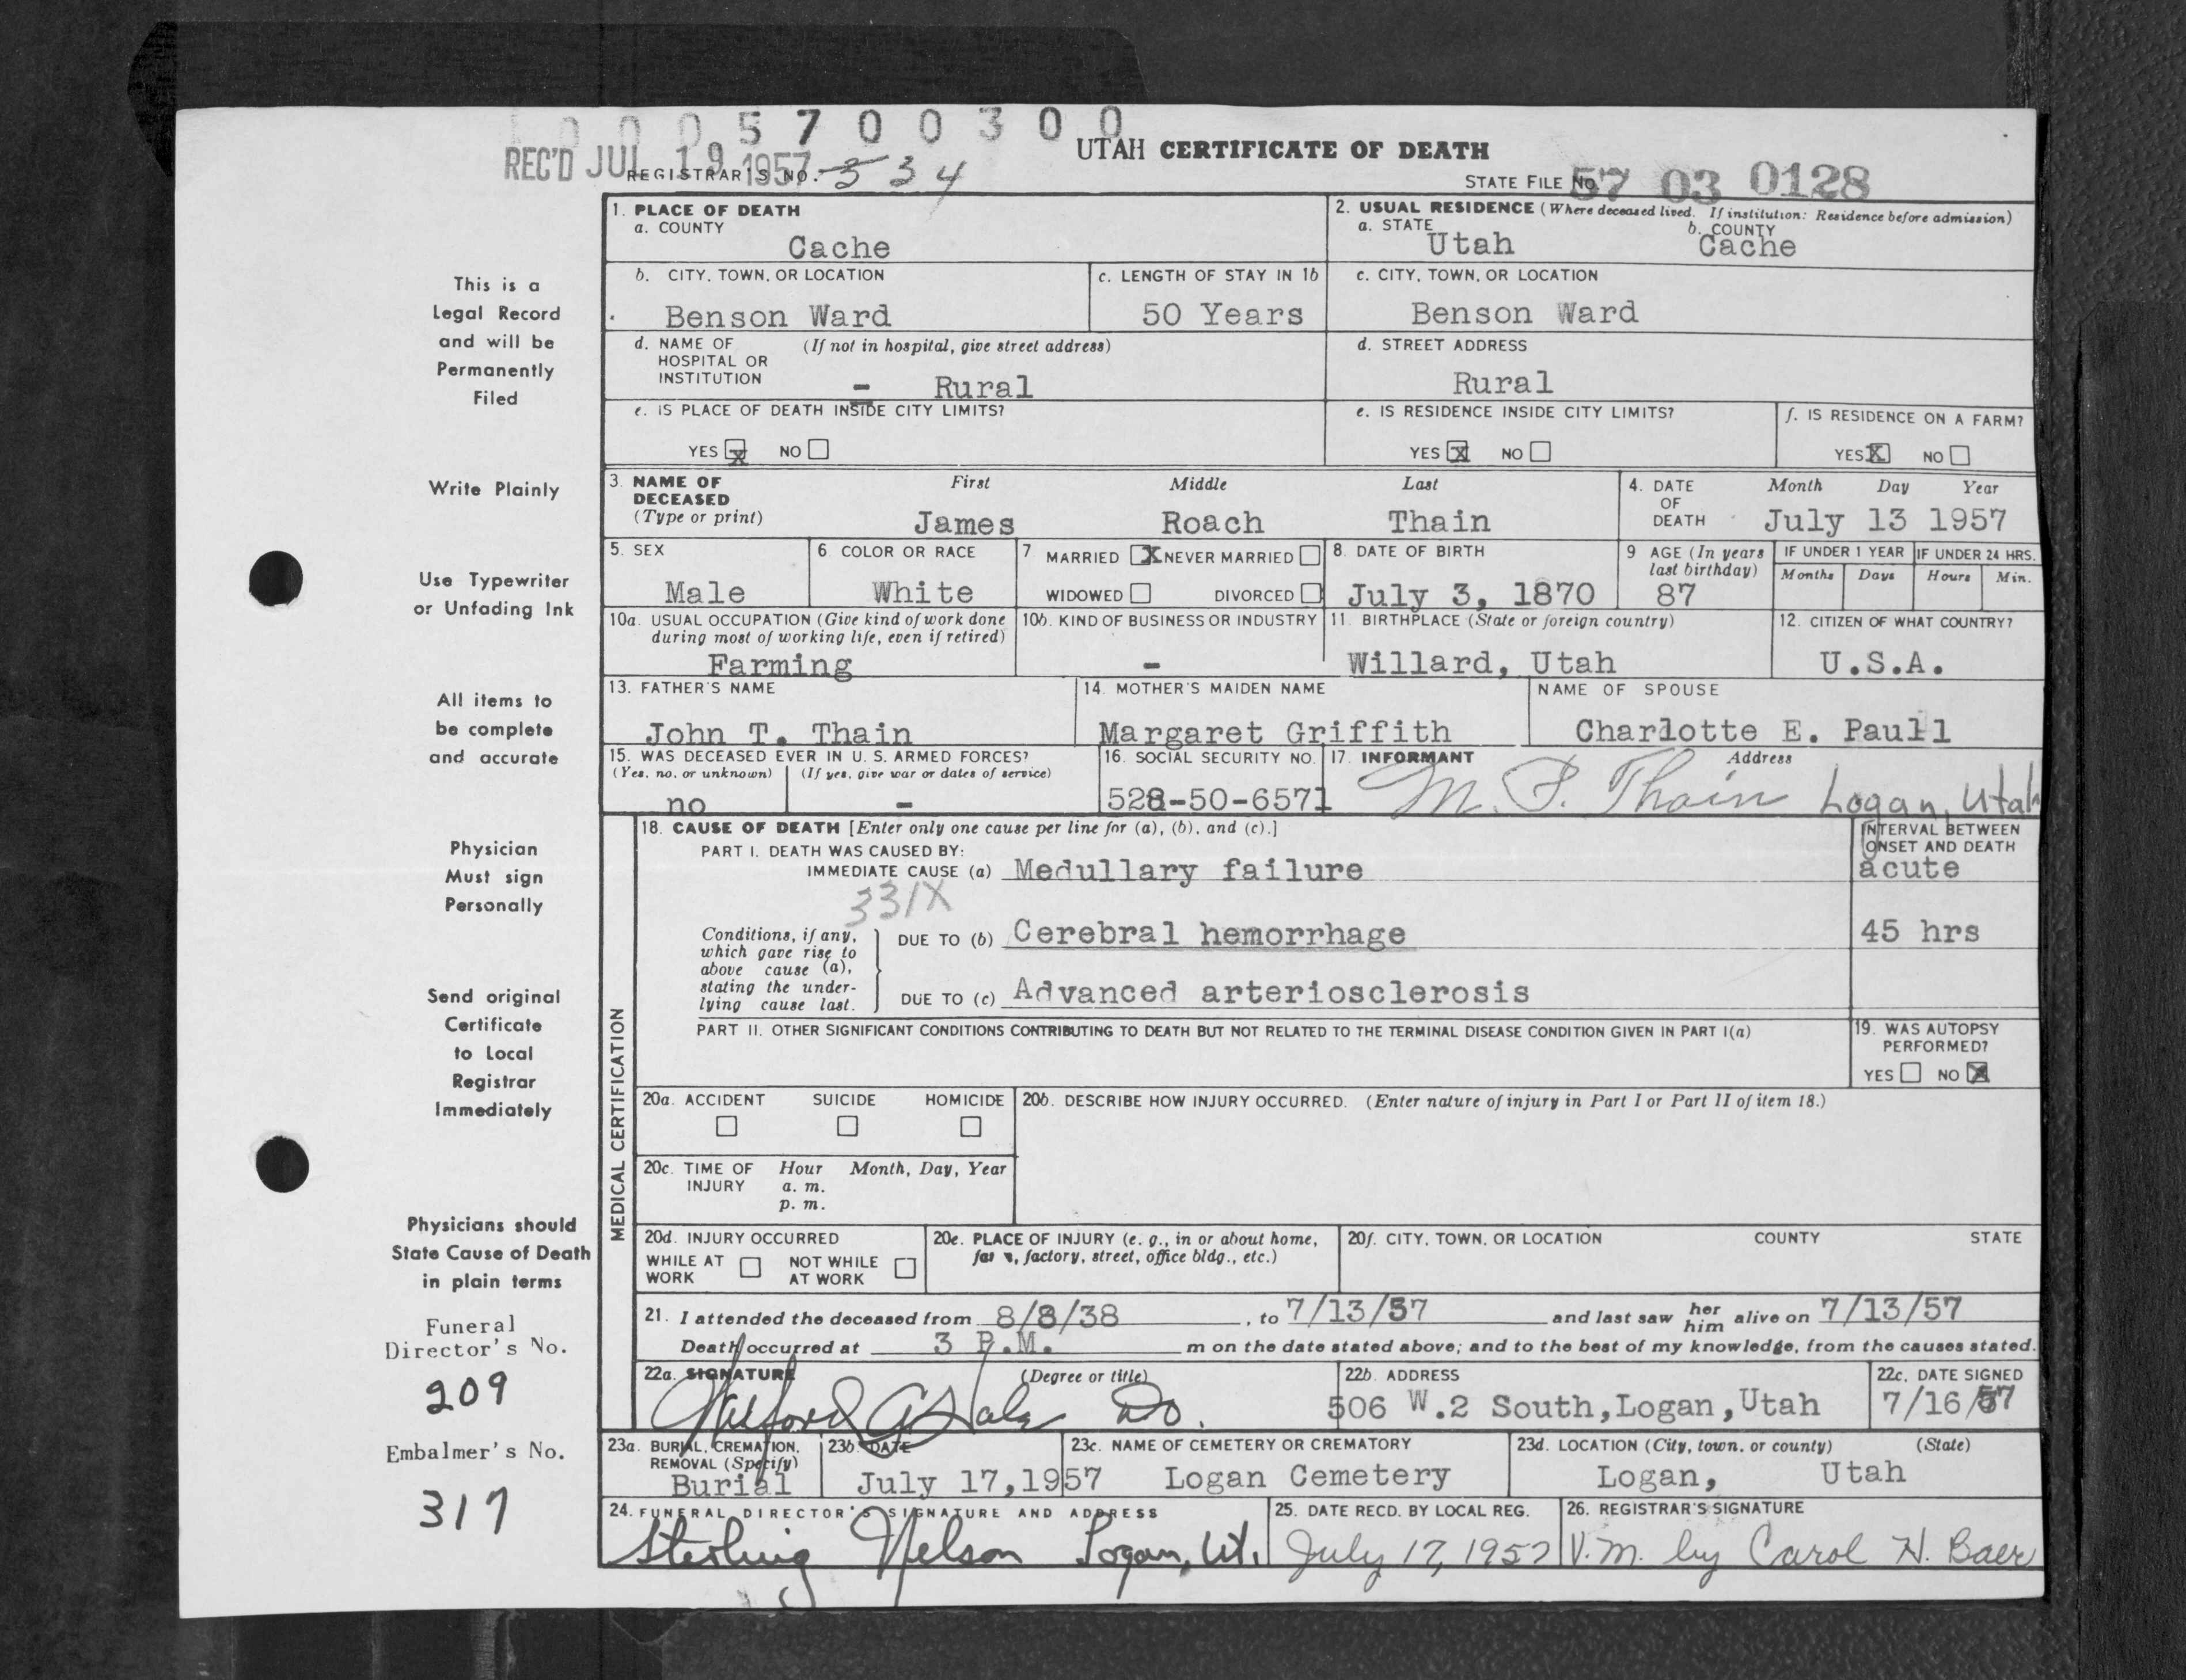 0 0 0 5 7 0 0 3 0 0
UTAH CERTIFICATE OF DEATH
REC'D JUL 19 1957
REGISTRAR'S NO. 334
STATE FILE NO. 57 03 0128
This is a
Legal Record
and will be
Permanently
Filed
Write Plainly
Use Typewriter
or Unfading Ink
All items to
be complete
and accurate
Physician
Must sign
Personally
Send original
Certificate
to Local
Registrar
Immediately
Physicians should
State Cause of Death
in plain terms
Funeral
Director's No.
209
Embalmer's No.
317
1. PLACE OF DEATH
a. COUNTY
Cache
2. USUAL RESIDENCE (Where deceased lived. If institution: Residence before admission)
a. STATE b. COUNTY
Utah Cache
b. CITY, TOWN, OR LOCATION
Benson Ward
c. LENGTH OF STAY IN 1b
50 Years
c. CITY, TOWN, OR LOCATION
Benson Ward
d. NAME OF (If not in hospital, give street address)
HOSPITAL OR
INSTITUTION - Rural
d. STREET ADDRESS
Rural
e. IS PLACE OF DEATH INSIDE CITY LIMITS?
YES X NO
e. IS RESIDENCE INSIDE CITY LIMITS?
YES X NO
f. IS RESIDENCE ON A FARM?
YES X NO
3. NAME OF First Middle Last
DECEASED
(Type or print) James Roach Thain
4. DATE Month Day Year
OF
DEATH July 13 1957
5. SEX
Male
6 COLOR OR RACE
White
7 MARRIED X NEVER MARRIED
WIDOWED DIVORCED
8. DATE OF BIRTH
July 3, 1870
9 AGE (In years
last birthday)
87
IF UNDER 1 YEAR
Months Days
IF UNDER 24 HRS.
Hours Min.
10a. USUAL OCCUPATION (Give kind of work done
during most of working life, even if retired)
Farming
10b. KIND OF BUSINESS OR INDUSTRY
-
11. BIRTHPLACE (State or foreign country)
Willard, Utah
12. CITIZEN OF WHAT COUNTRY?
U.S.A.
13. FATHER'S NAME
John T. Thain
14. MOTHER'S MAIDEN NAME
Margaret Griffith
NAME OF SPOUSE
Charlotte E. Paull
15. WAS DECEASED EVER IN U. S. ARMED FORCES?
(Yes, no, or unknown) (If yes, give war or dates of service)
no -
16. SOCIAL SECURITY NO.
528-50-6571
17. INFORMANT Address
M. P. Thain Logan, Utah
MEDICAL CERTIFICATION
18. CAUSE OF DEATH [Enter only one cause per line for (a), (b), and (c).]
PART I. DEATH WAS CAUSED BY:
IMMEDIATE CAUSE (a) Medullary failure
INTERVAL BETWEEN
ONSET AND DEATH
acute
331X
Conditions, if any,
which gave rise to
above cause (a),
stating the under-
lying cause last.
DUE TO (b) Cerebral hemorrhage
45 hrs
DUE TO (c) Advanced arteriosclerosis
PART II. OTHER SIGNIFICANT CONDITIONS CONTRIBUTING TO DEATH BUT NOT RELATED TO THE TERMINAL DISEASE CONDITION GIVEN IN PART I(a)
19. WAS AUTOPSY
PERFORMED?
YES NO X
20a. ACCIDENT SUICIDE HOMICIDE
20b. DESCRIBE HOW INJURY OCCURRED. (Enter nature of injury in Part I or Part II of item 18.)
20c. TIME OF Hour Month, Day, Year
INJURY a. m.
p. m.
20d. INJURY OCCURRED
WHILE AT NOT WHILE
WORK AT WORK
20e. PLACE OF INJURY (e. g., in or about home,
farm, factory, street, office bldg., etc.)
20f. CITY, TOWN, OR LOCATION COUNTY STATE
21. I attended the deceased from 8/8/38, to 7/13/57 and last saw her him alive on 7/13/57
Death occurred at 3 P.M. m on the date stated above; and to the best of my knowledge, from the causes stated.
22a. SIGNATURE (Degree or title)
Wilford G Hale DO.
22b. ADDRESS
506 W.2 South, Logan, Utah
22c. DATE SIGNED
7/16/57
23a. BURIAL, CREMATION,
REMOVAL (Specify)
Burial
23b. DATE
July 17, 1957
23c. NAME OF CEMETERY OR CREMATORY
Logan Cemetery
23d. LOCATION (City, town, or county) (State)
Logan, Utah
24. FUNERAL DIRECTOR'S SIGNATURE AND ADDRESS
Sterling Nelson Logan, Ut.
25. DATE RECD. BY LOCAL REG.
July 17, 1957
26. REGISTRAR'S SIGNATURE
V.M. by Carol H. Baer